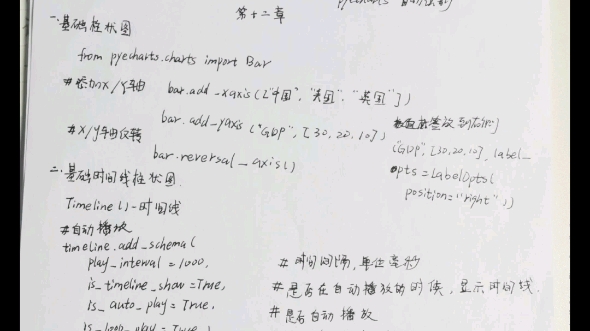 第十二章
一.基础柱状图
from pyecharts.charts import Bar
#添加x/y轴 bar.add_xaxis(["中国","美国","英国"])
bar.add_yaxis("GDP",[30,20,10])
("GDP",[30,20,10],label_
opts=LabelOpts(
position="right"))
#x/y轴反转
bar.reversal_axis()
二.基础时间线柱状图.
Timeline()-时间线
#自动播放
timeline.add_schema(
play_interval=1000, #时间间隔,单位毫秒
is_timeline_show=True, #是否在自动播放的时候,显示时间线.
is_auto_play=True, #是否自动播放
is_loop_play=True,